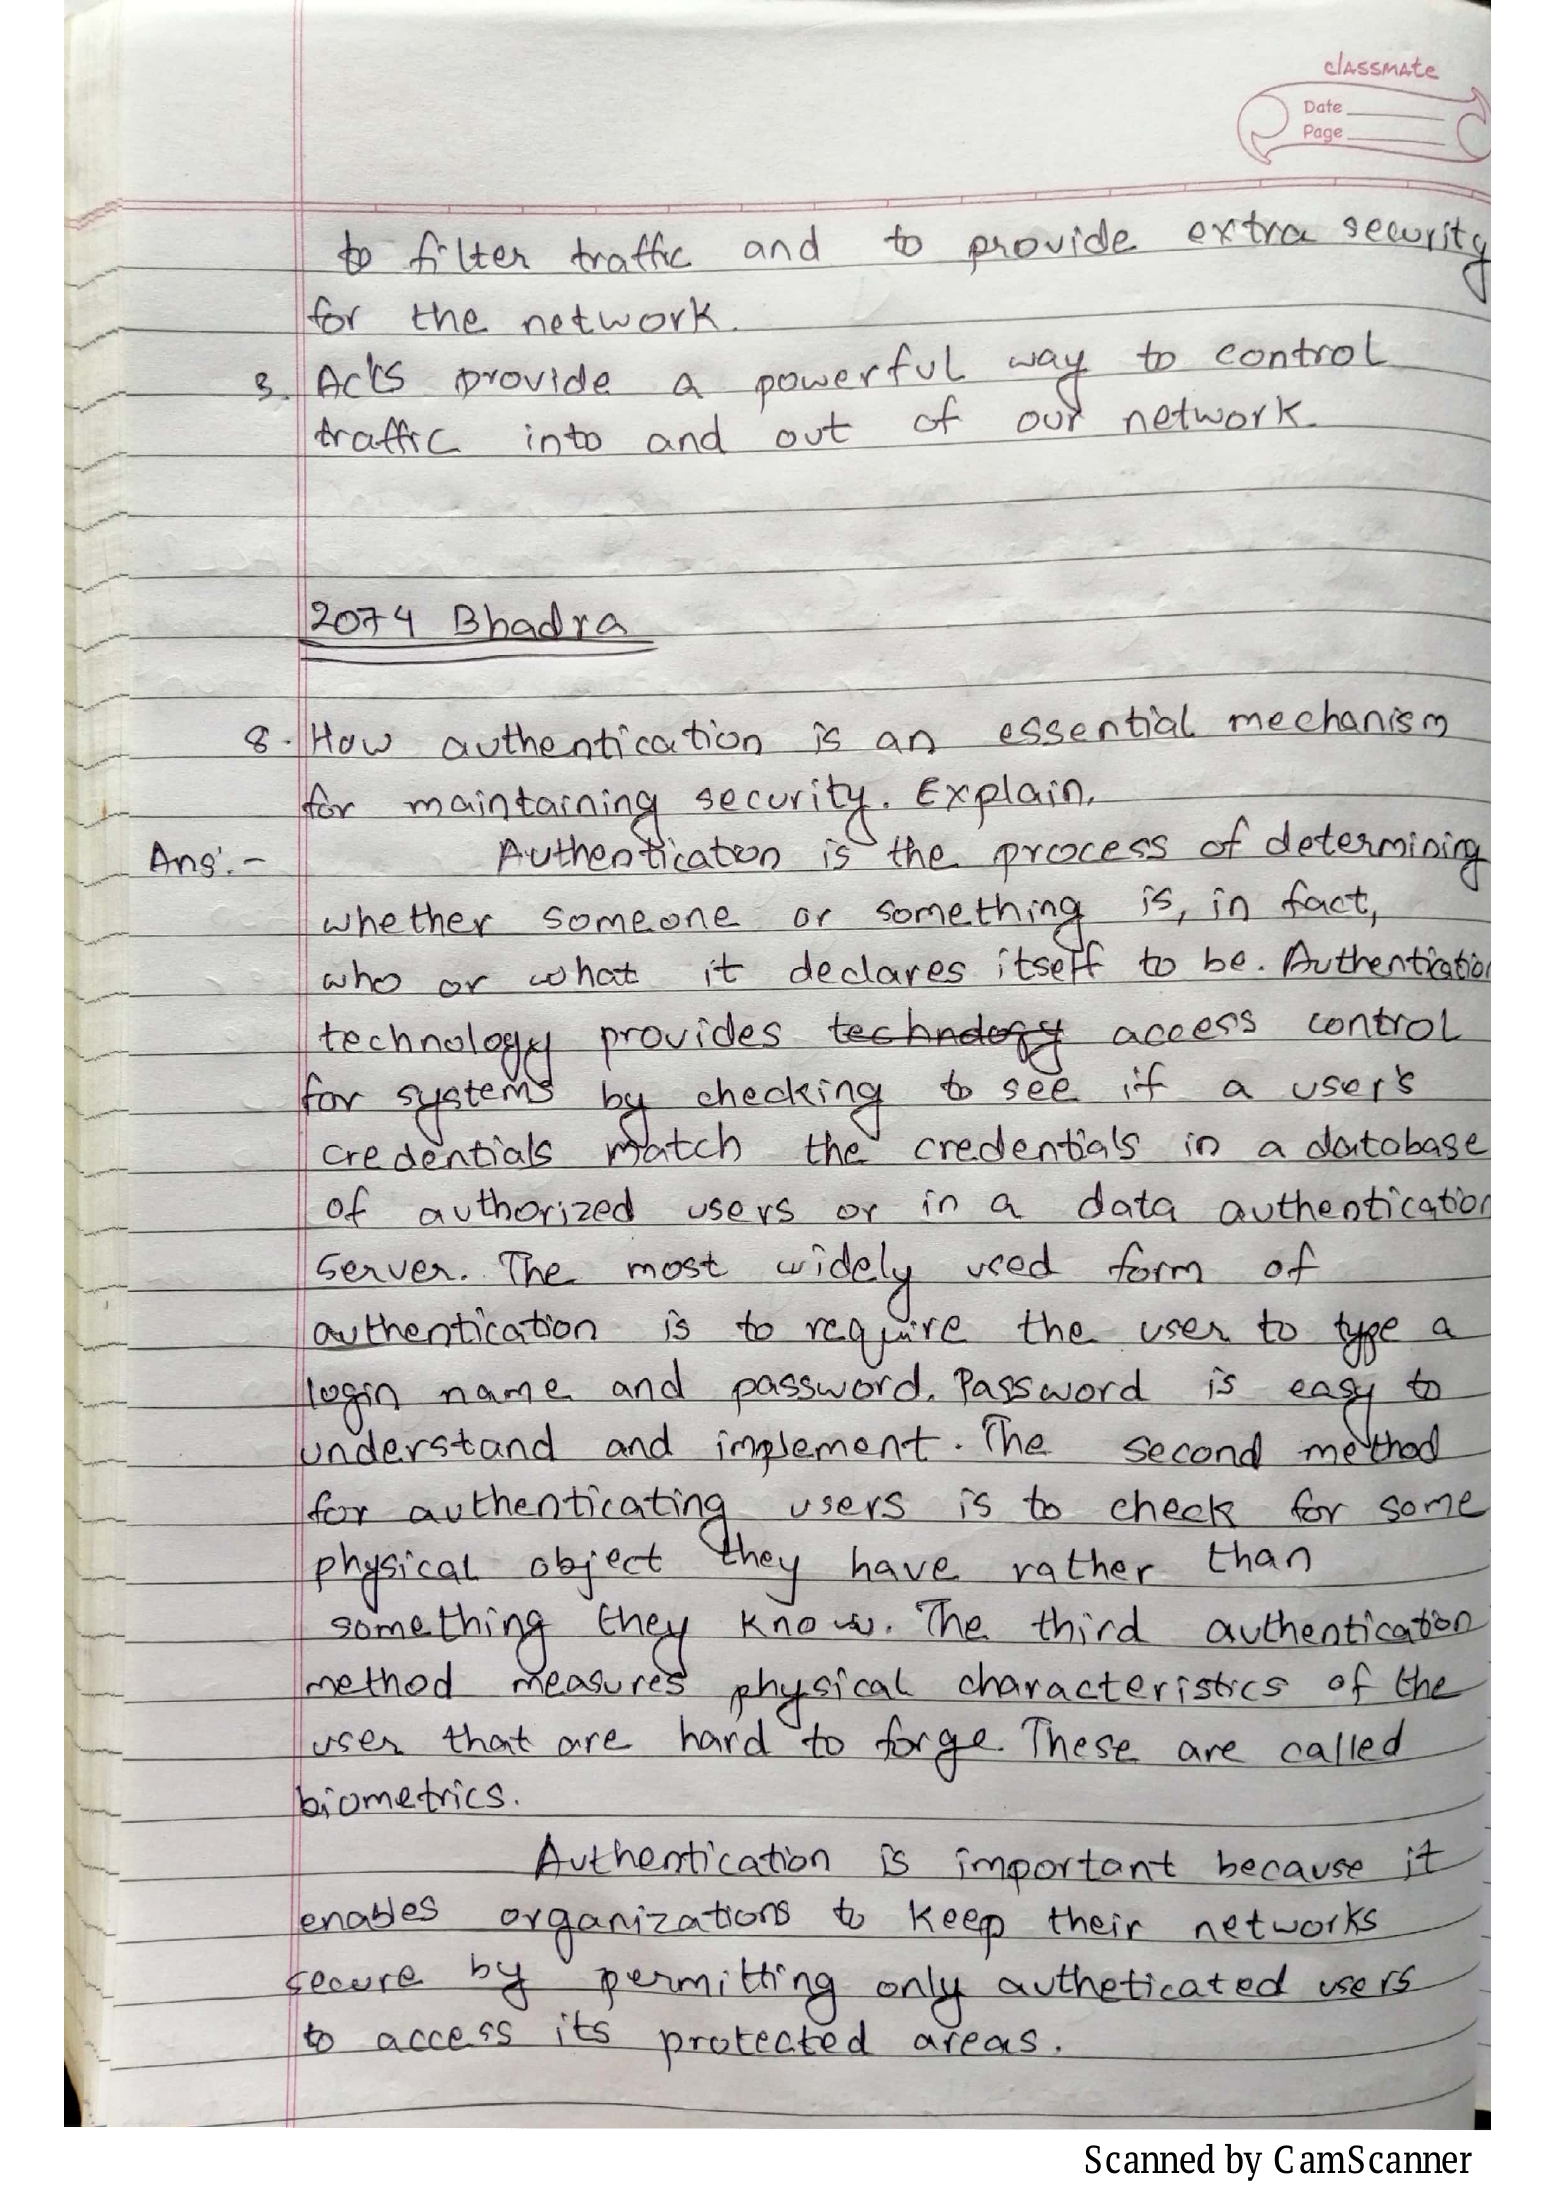 classmate
Date
Page
to filter traffic and to provide extra security
for the network.
3. Acls provide a powerful way to control
traffic into and out of our network.
2074 Bhadra
8. How authentication is an essential mechanism
for maintaining security. Explain.
Ans:- Authentication is the process of determining
whether someone or something is, in fact,
who or what it declares itself to be. Authentication
technology provides technology access control
for systems by checking to see if a user's
credentials match the credentials in a database
of authorized users or in a data authentication
server. The most widely used form of
authentication is to require the user to type a
login name and password. Password is easy to
understand and implement. The second method
for authenticating users is to check for some
physical object they have rather than
something they know. The third authentication
method measures physical characteristics of the
user that are hard to forge. These are called
biometrics.
Authentication is important because it
enables organizations to keep their networks
secure by permitting only autheticated users
to access its protected areas.
Scanned by CamScanner